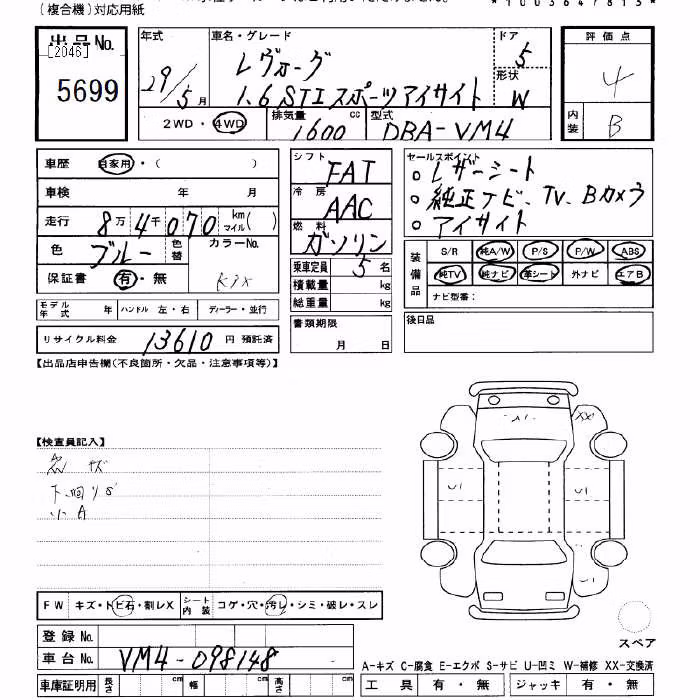 (複合機)対応用紙
*1003647813*
出品No.
[2046]
5699
年式
29/5月
車名・グレード
レヴォーグ
1.6 STI スポーツアイサイト
ドア
5
形状
W
2WD・4WD
排気量
1600 cc
型式
DBA-VM4
評価点
4
内装
B
車歴 自家用・( )
車検 年 月
走行 8万4千070 km マイル( )
色 ブルー 色替 カラーNo.
保証書 有・無 K7X
モデル年式 年 ハンドル 左・右 ディーラー・並行
リサイクル料金 13610 円 預託済
シフト
FAT
冷房
AAC
燃料
ガソリン
乗車定員 5 名
積載量 kg
総重量 kg
書類期限
月 日
セールスポイント
○ レザーシート
○ 純正ナビ、TV、Bカメラ
○ アイサイト
装備品
S/R 純A/W P/S P/W ABS
純TV 純ナビ 革シート 外ナビ エアB
ナビ型番:
後日品
【出品店申告欄(不良箇所・欠品・注意事項等)】
【検査員記入】
下廻りS
小A
A1
XX
U1
U1
U1
FW キズ・トビ石・割レX シート内装 コゲ・穴・汚レ・シミ・破レ・スレ
登録No.
車台No. VM4-098148
車庫証明用 長さ cm 幅 cm 高さ cm
スペア
A-キズ C-腐食 E-エクボ S-サビ U-凹ミ W-補修 XX-交換済
工具 有・無 ジャッキ 有・無